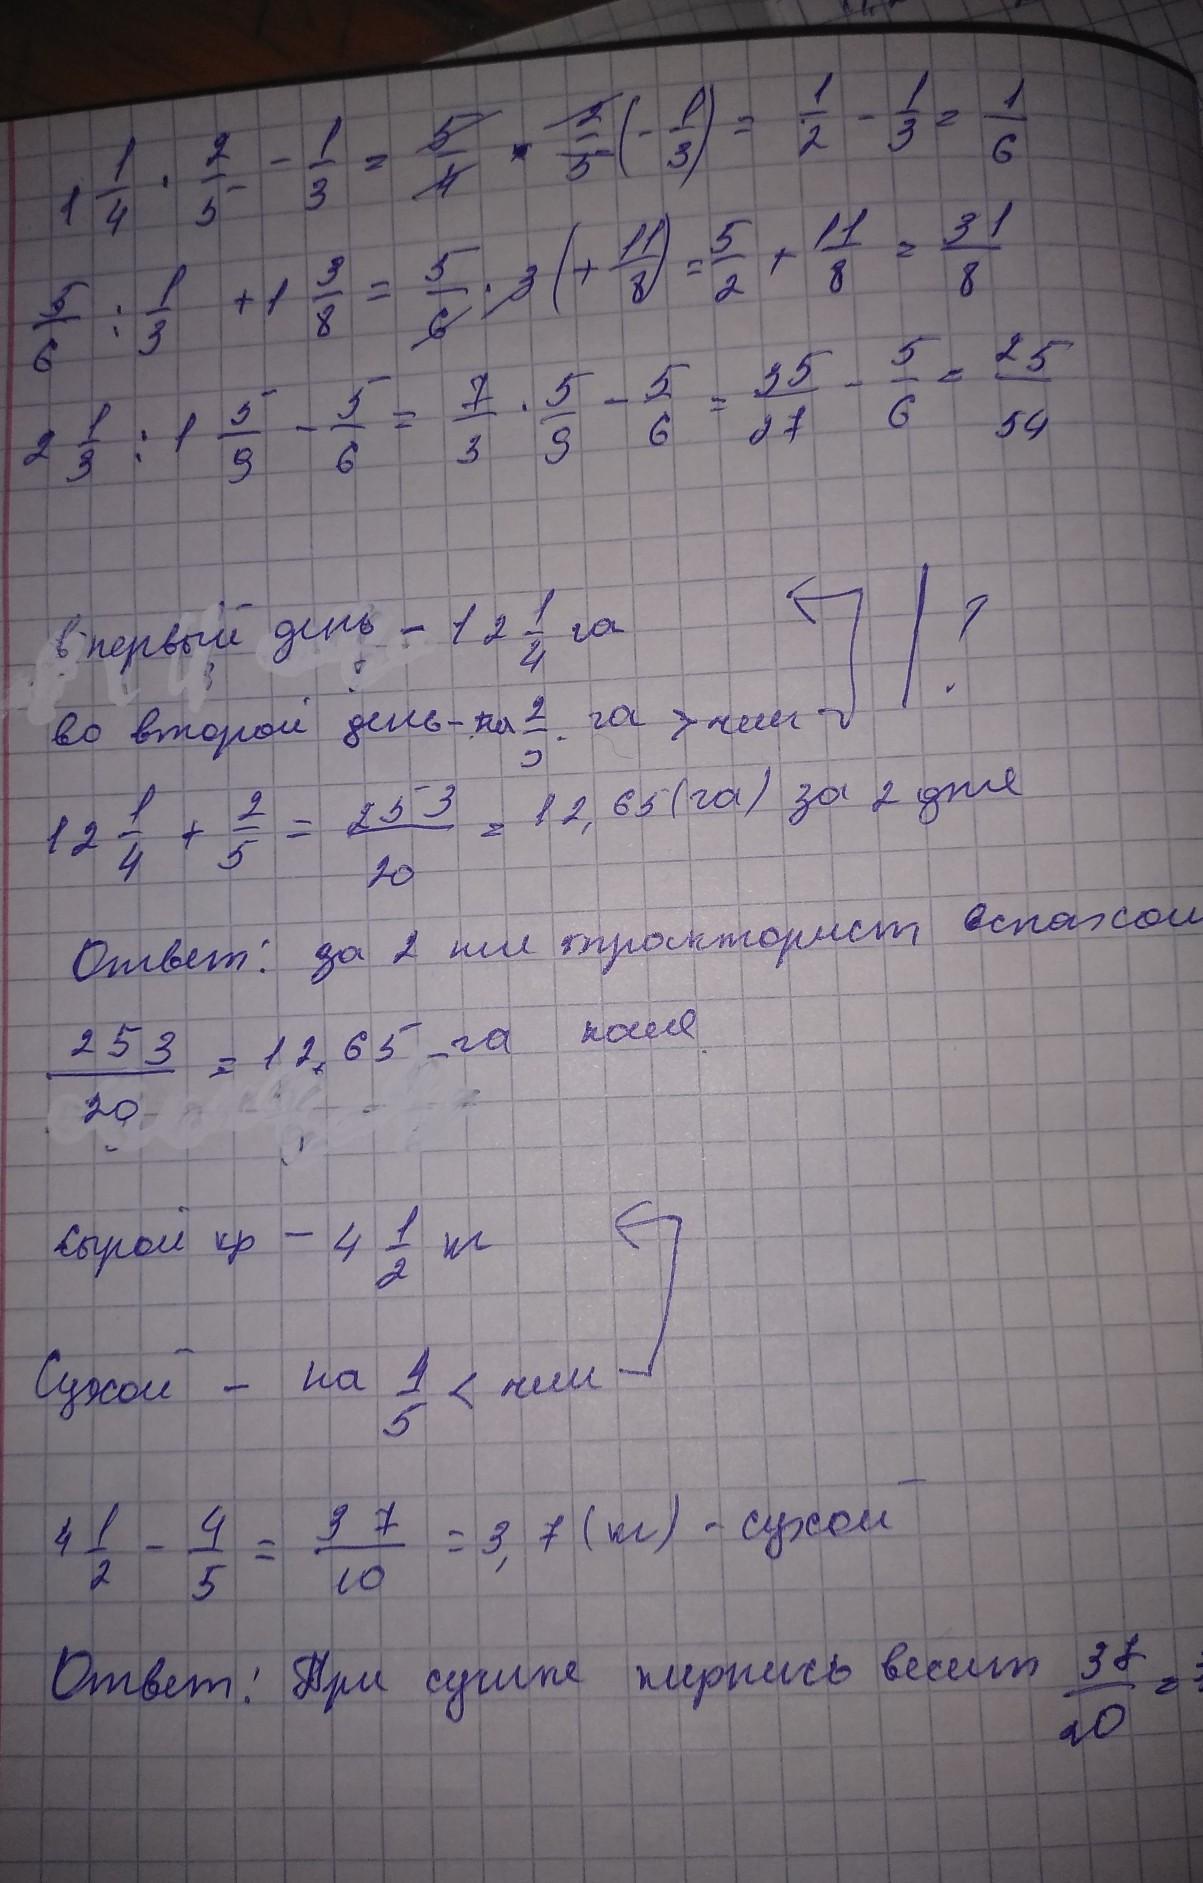 1 1/4 · 2/5 - 1/3 = 5/4 · 2/5 (- 1/3) = 1/2 - 1/3 = 1/6
5/6 : 1/3 + 1 3/8 = 5/6 · 3 (+ 11/8) = 5/2 + 11/8 = 31/8
2 1/3 : 1 5/9 - 5/6 = 7/3 · 5/9 - 5/6 = 35/27 - 5/6 = 25/54
в первый день - 12 1/4 га ?
во второй день - на 2/5 га > чем
12 1/4 + 2/5 = 253/20 = 12,65 (га) за 2 дня
Ответ: за 2 тракторист вспахал
253/20 = 12,65 га поля
сырой кр - 4 1/2 кг
Сухой - на 4/5 < чем
4 1/2 - 4/5 = 37/10 = 3,7 (кг) - сухой
Ответ: При сушке кирпись весит 37/10 =